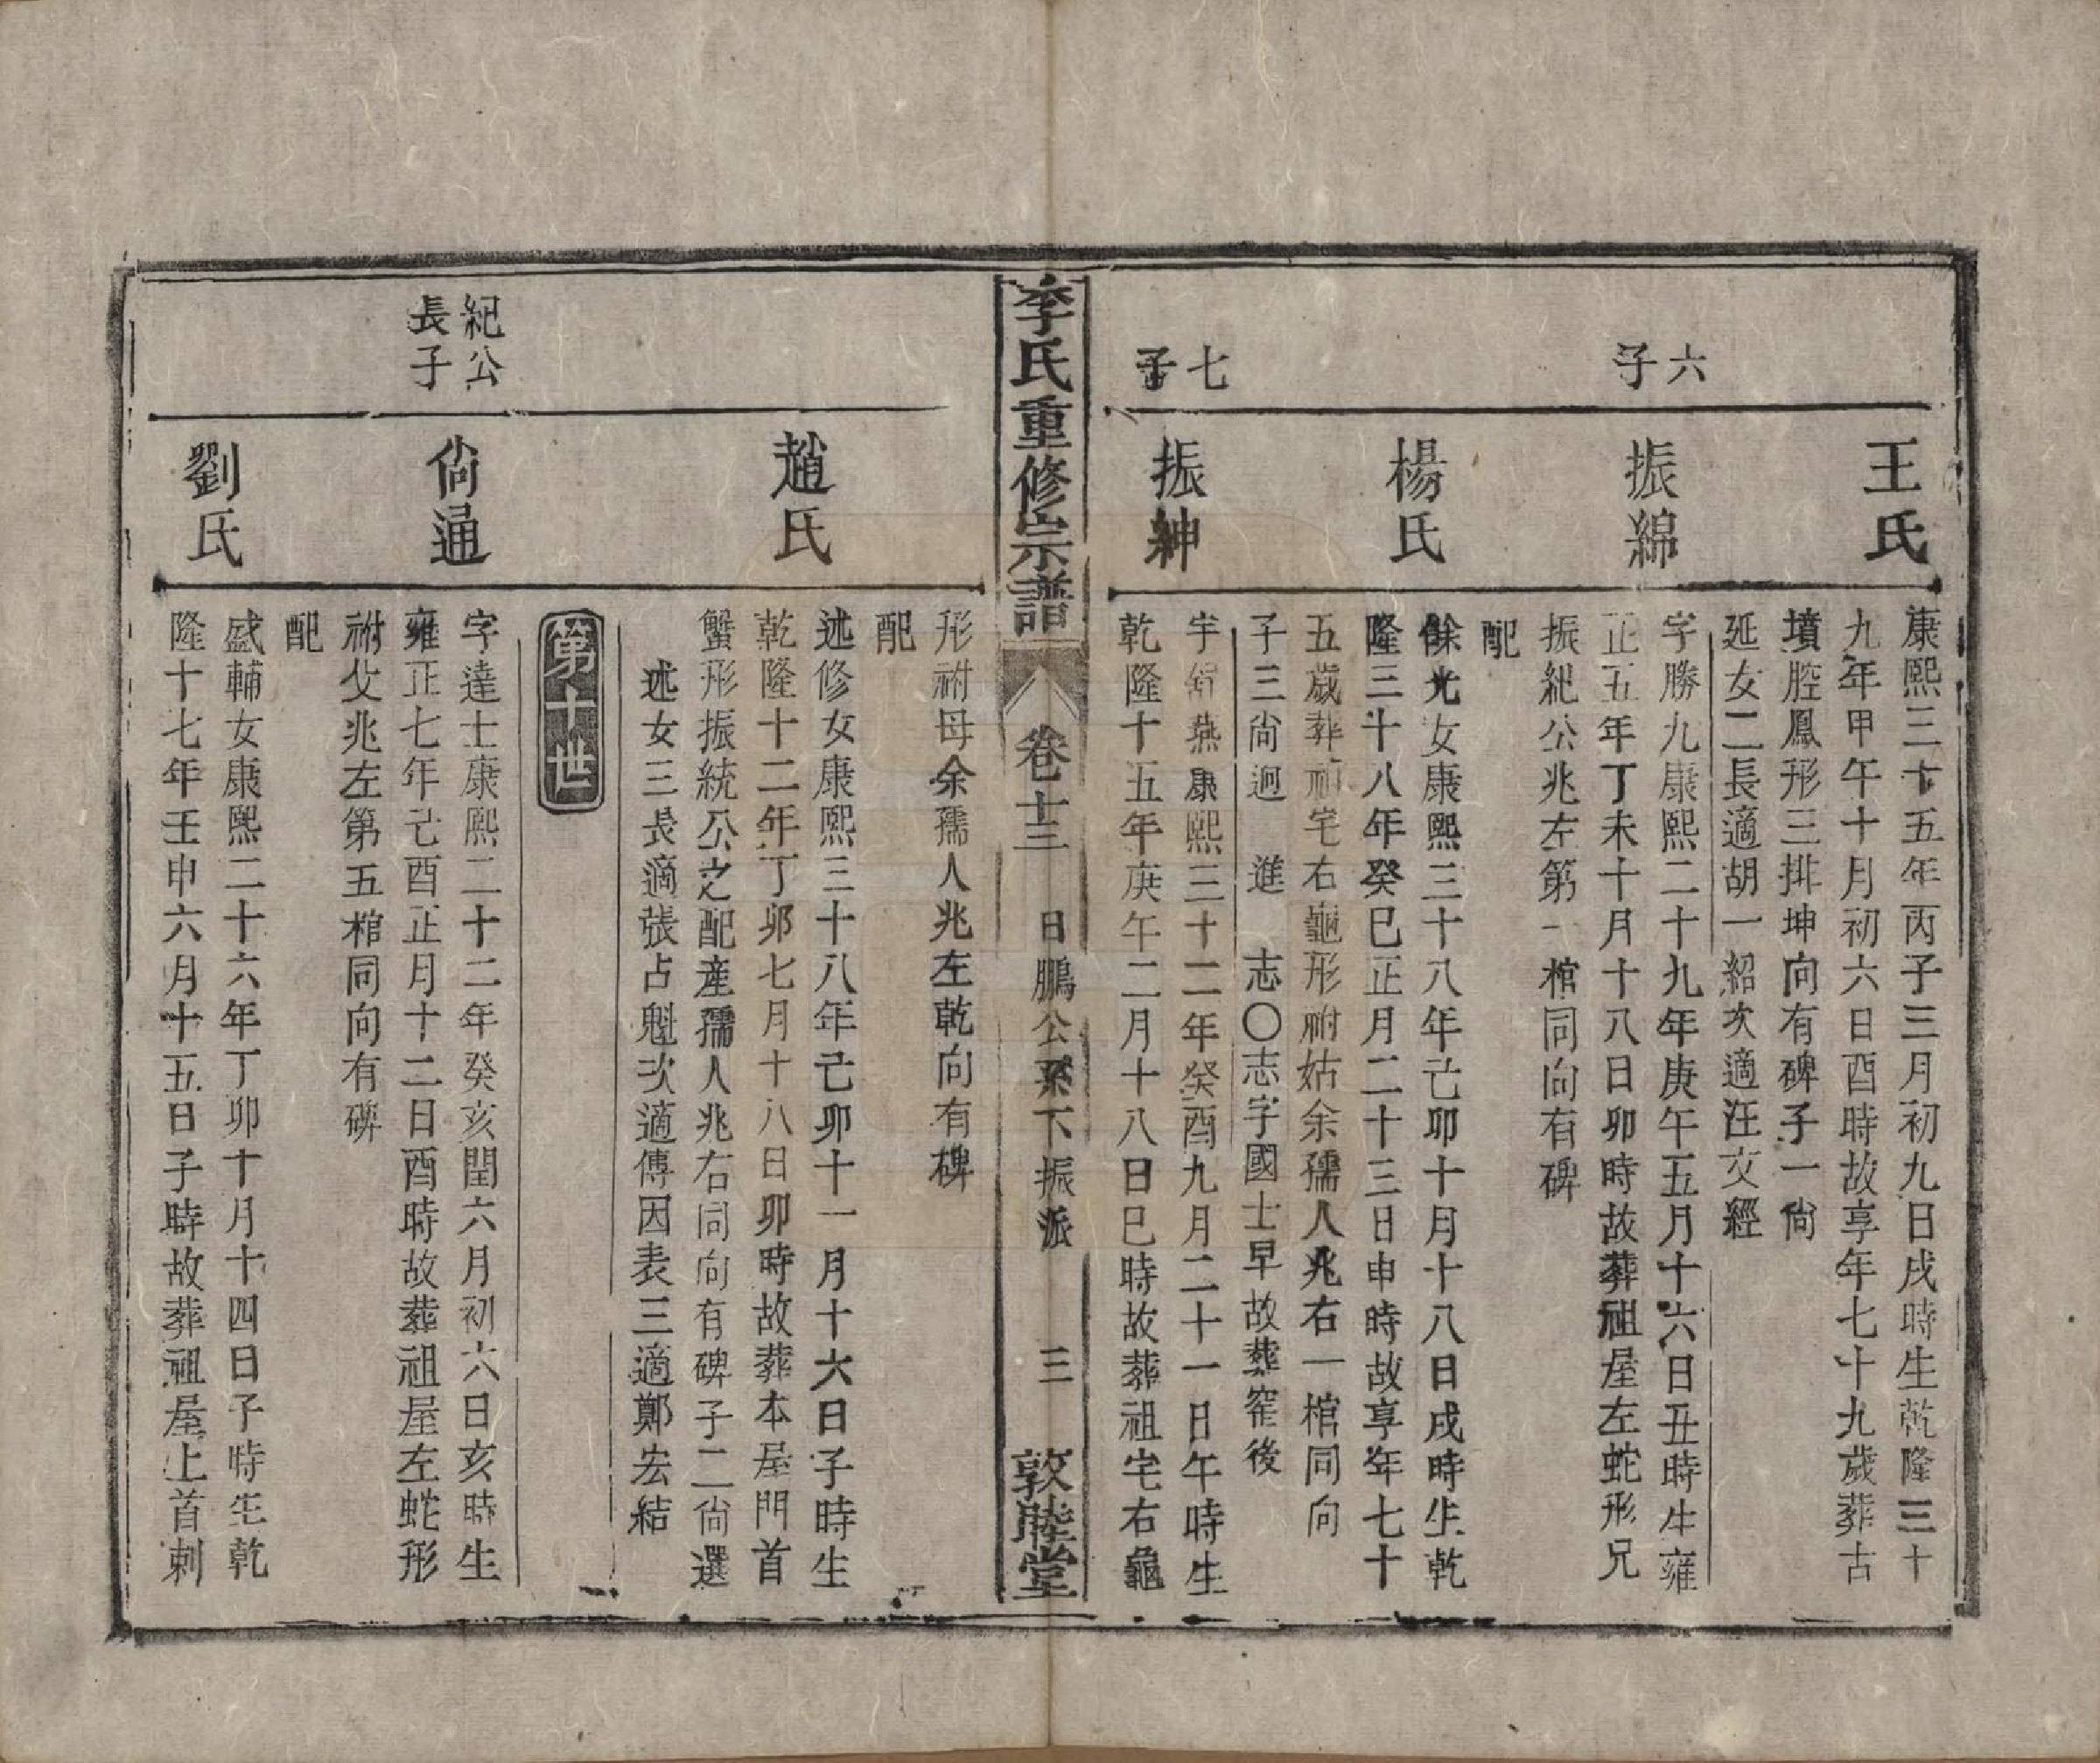 王氏
康熙三十五年丙子三月初九日戌時生乾隆三十
九年甲午十月初六日酉時故享年七十九歲葬古
墳腔鳳形三排坤向有碑子一尙
延女二長適胡一紹次適汪文經
六子
振綿
字勝九康熙二十九年庚午五月十六日丑時生雍
正五年丁未十月十八日卯時故葬祖屋左蛇形兄
振紀公兆左第一棺同向有碑
配
楊氏
餘光女康熙三十八年己卯十月十八日戌時生乾
隆三十八年癸巳正月二十三日申時故享年七十
五歲葬祖宅右龜形祔姑余孺人兆右一棺同向
子三尙迥 進 志〇志字國士早故葬窑後
七子
振紳
字 燕康熙三十二年癸酉九月二十一日午時生
乾隆十五年庚午二月十八日巳時故葬祖宅右龜
李氏重修宗譜 卷十三 日鵬公系下振派 三 敦睦堂
形祔母余孺人兆左乾向有碑
配
趙氏
述修女康熙三十八年己卯十一月十六日子時生
乾隆十二年丁卯七月十八日卯時故葬本屋門首
蟹形振統公之配產孺人兆右同向有碑子二尙選
述女三長適張占魁次適傅因表三適鄭宏結
第十世
紀公長子
尙通
字達士康熙二十二年癸亥閏六月初六日亥時生
雍正七年己酉正月十二日酉時故葬祖屋左蛇形
祔父兆左第五棺同向有碑
配
劉氏
盛輔女康熙二十六年丁卯十月十四日子時生乾
隆十七年壬申六月十五日子時故葬祖屋上首刺